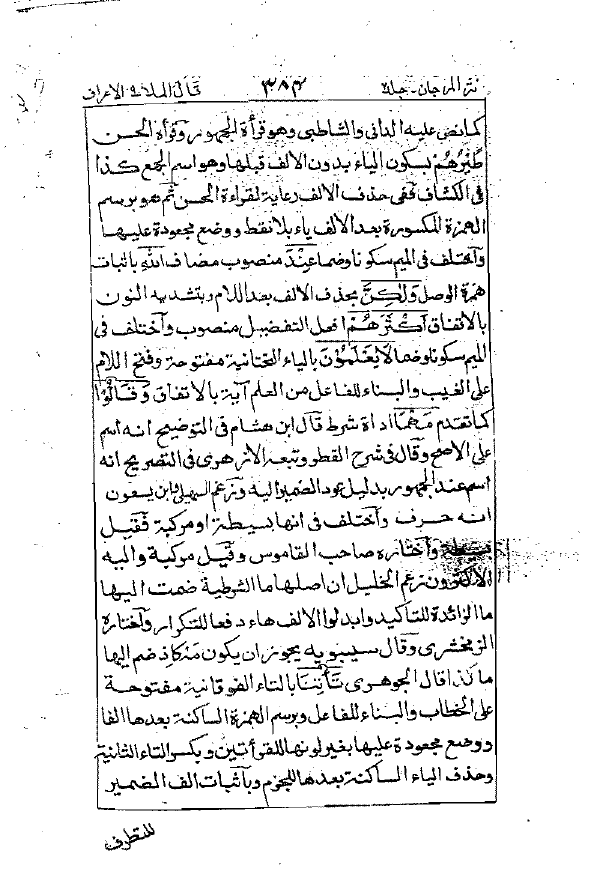 نثر المرجان - جلد ٢ ٣٨٤ قال الملأ ٩ الاعراف
كما نص عليه الدانى والشاطبى وهو قرأة الجمهور وقرأة الحسن
طَيْرُهُمْ بسكون الياء بدون الالف قبلها وهو اسم الجمع كذا
فى الكشاف ففى حذف الالف رعاية لقراءة الحسن ثم هو برسم
الهمزة المكسورة بعد الالف ياء بلا نقط ووضع مجعودة عليها
واختلف فى الميم سكونا وضما عِنْدَ منصوب مضاف اللّٰهِ باثبات
همزة الوصل وَلٰكِنَّ بحذف الالف بعد اللام وبتشديد النون
بالاتفاق اَكْثَرَهُمْ افعل التفضيل منصوب واختلف فى
الميم سكونا وضما لَا يَعْلَمُوْنَ بالياء التحتانية مفتوحة وفتح اللام
على الغيب والبناء للفاعل من العلم آية بالاتفاق وَقَالُوْا
كما تقدم مَهْمَا اداة شرط قال ابن هشام فى التوضيح انه اسم
على الاصح وقال فى شرح القطر وتبعه الازهرى فى التصريح انه
اسم عند الجمهور بدليل عود الضمير اليه وزعم السهيلى وابن يسعون
انه حرف واختلف فى انها بسيطة او مركبة فقيل
بسيطة واختاره صاحب القاموس وقيل مركبة واليه
الاكثرون زعم الخليل ان اصلها ما الشرطية ضمت اليها
ما الزائدة للتاكيد وابدلوا الالف هاء دفعا للتكرار واختاره
الزمخشرى وقال سيبويه يجوز ان يكون مه كاذ ضم اليها
ما كذا قال الجوهرى تَأْتِنَا بالتاء الفوقانية مفتوحة
على الخطاب والبناء للفاعل وبرسم الهمزة الساكنة بعدها الفا
ووضع مجعودة عليها بغير لونها للقرأتين وبكسر التاء الثانية
وحذف الياء الساكنة بعدها للجزم وباثبات الف الضمير
للتطرف